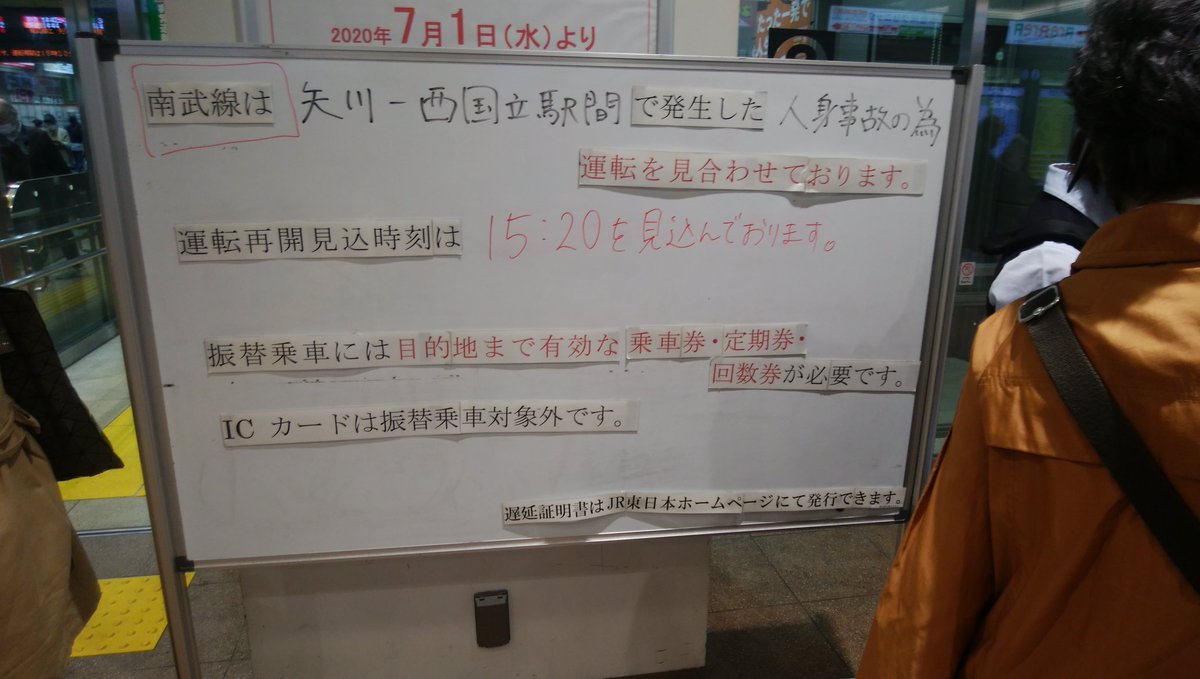 2020年7月1日(水)より
南武線は 矢川－西国立駅間 で発生した 人身事故の為
運転を見合わせております。
運転再開見込時刻は 15:20を見込んでおります。
振替乗車には目的地まで有効な 乗車券・定期券・
回数券が必要です。
IC カードは振替乗車対象外です。
遅延証明書はJR東日本ホームページにて発行できます。